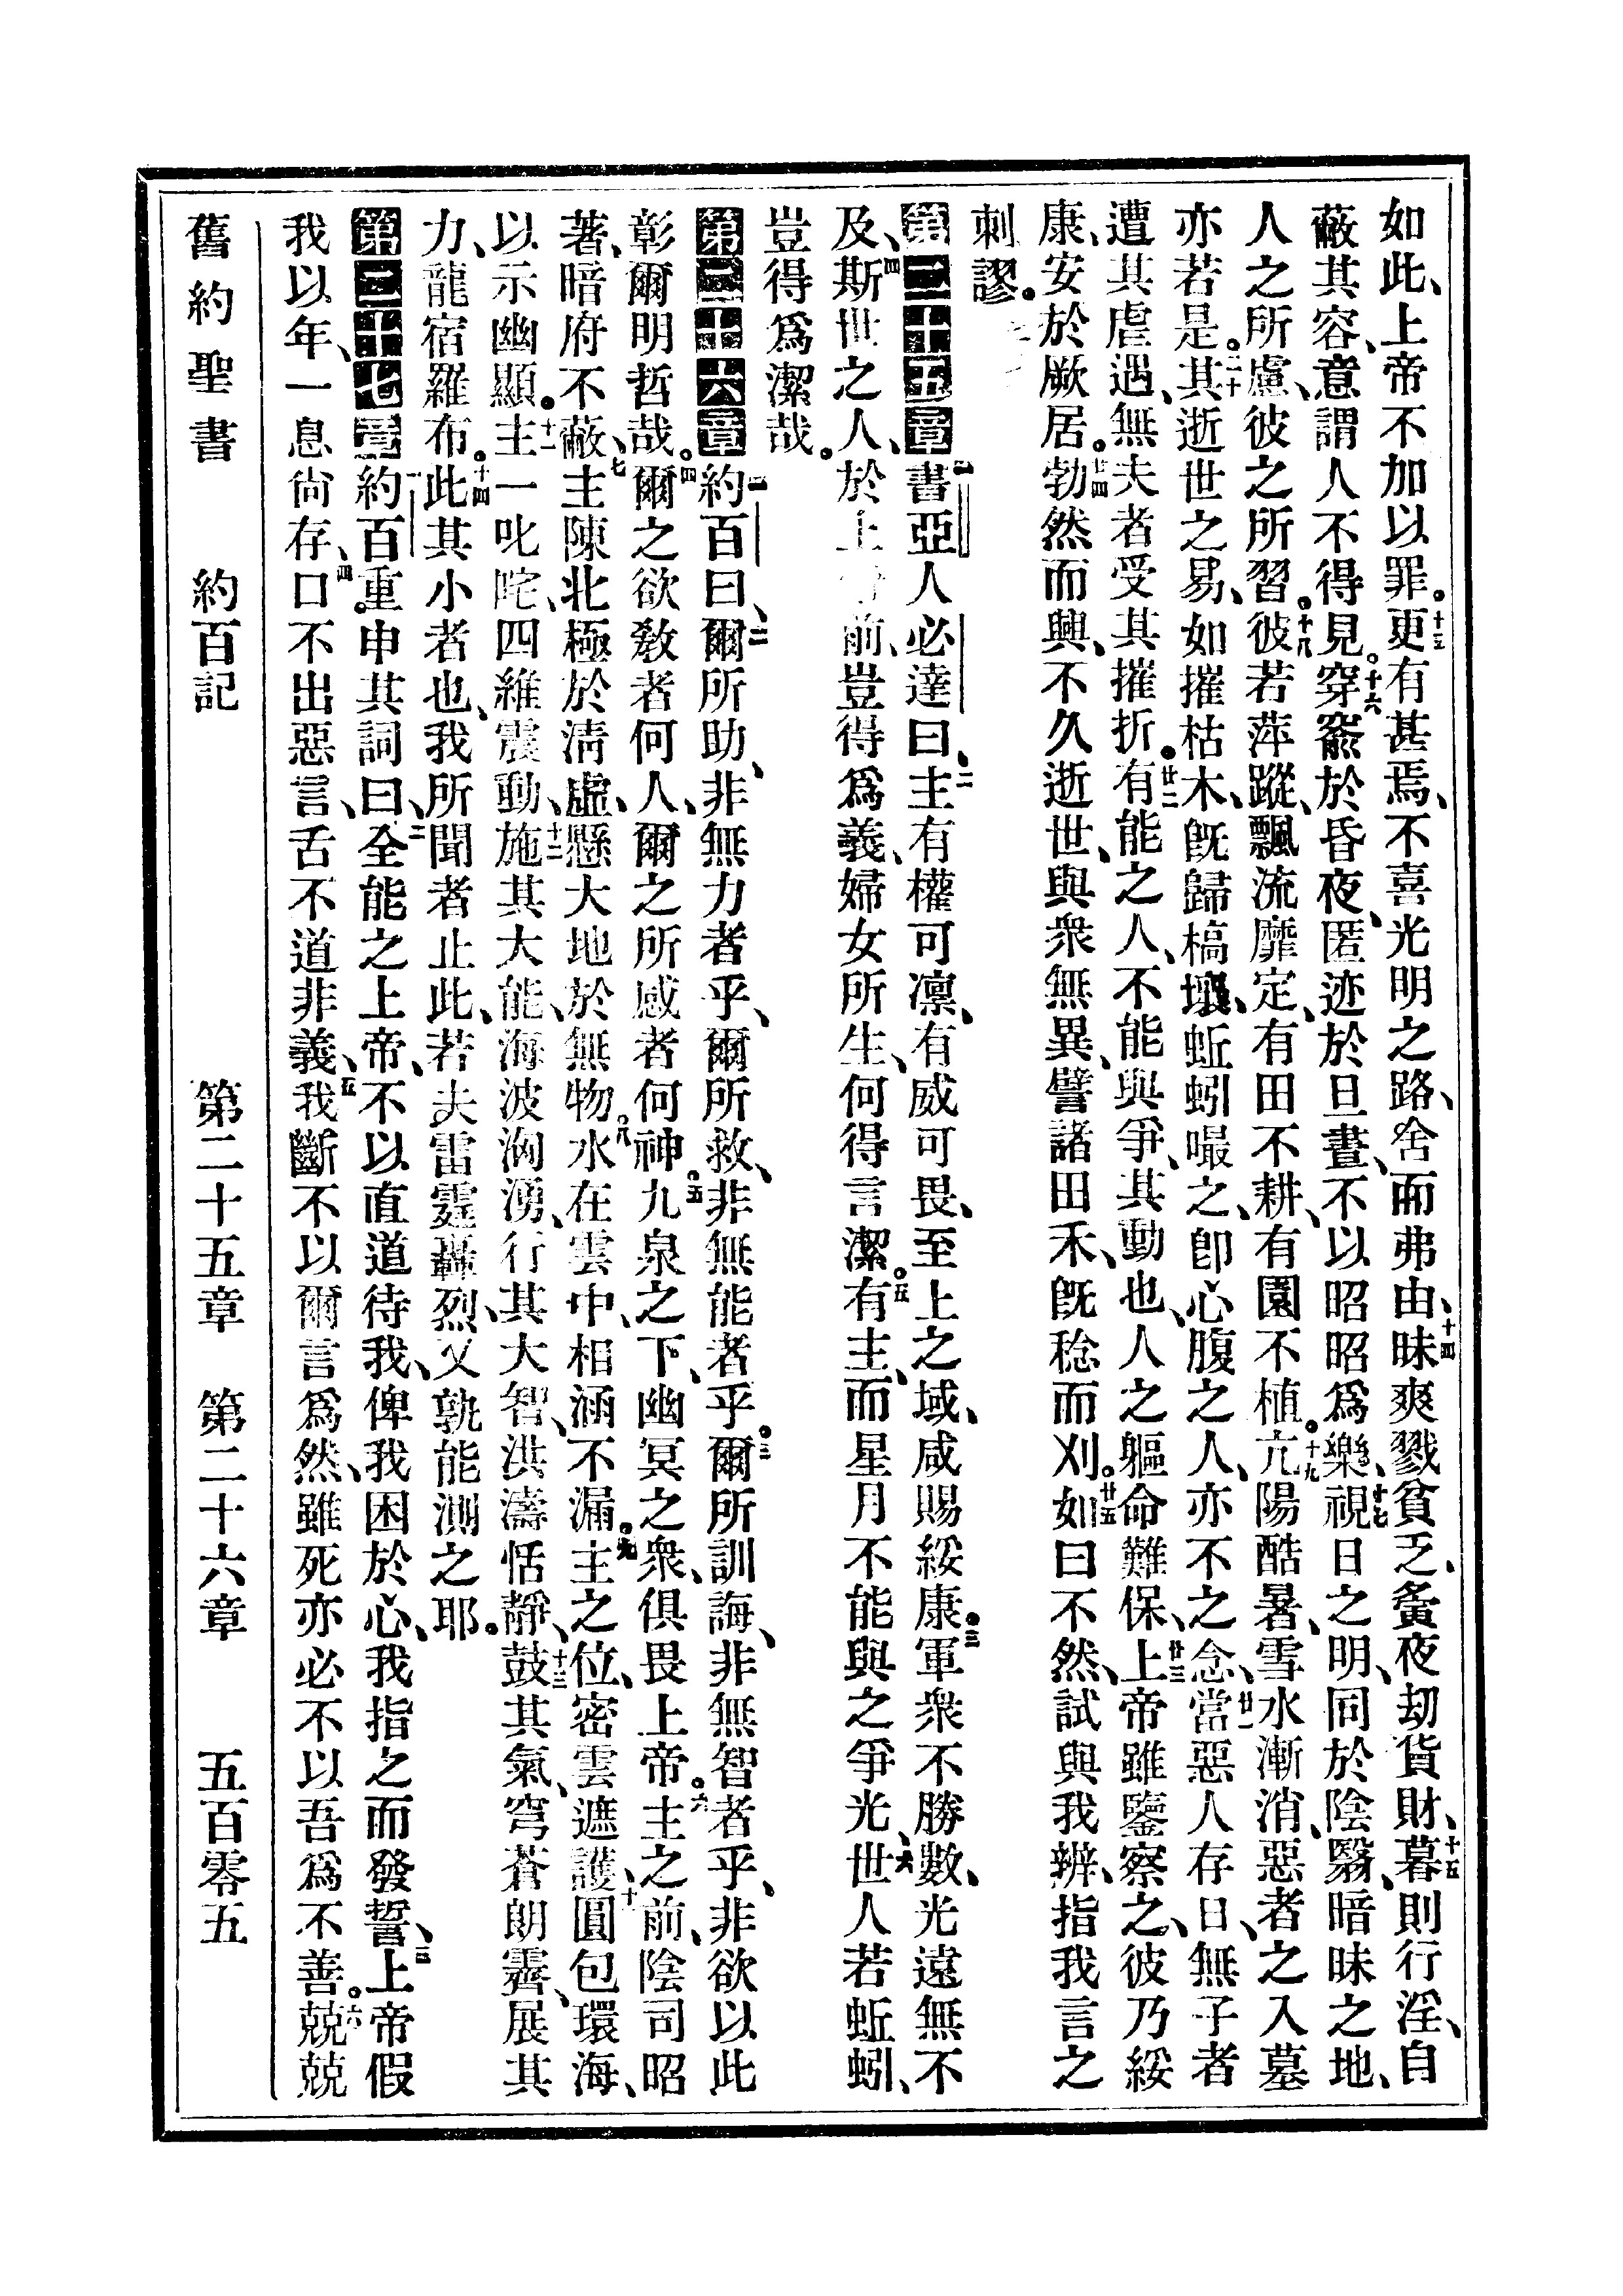 如此、上帝不加以罪。十三更有甚焉、不喜光明之路、舍而弗由、十四昧爽戮貧乏、夤夜刧貨財、十五暮則行淫、自
蔽其容、意謂人不得見。十六穿窬於昏夜、匿迹於旦晝、不以昭昭爲樂、十七視日之明、同於陰翳、暗昧之地、
人之所慮、彼之所習。十八彼若萍蹤、飄流靡定、有田不耕、有園不植。十九亢陽酷暑、雪水漸消、惡者之入墓
亦若是。二十其逝世之易、如摧枯木、旣歸槁壤、蚯蚓嘬之、卽心腹之人、亦不之念、廿一當惡人存日、無子者
遭其虐遇、無夫者受其摧折。廿二有能之人、不能與爭、其動也、人之軀命難保、廿三上帝雖鑒察之、彼乃綏
康、安於厥居。廿四勃然而興、不久逝世、與衆無異、譬諸田禾、旣稔而刈。廿五如曰不然、試與我辨、指我言之
刺謬。
第二十五章一書亞人必達曰、二主有權可凛、有威可畏、至上之域、咸賜綏康。三軍衆不勝數、光遠無不
及、四斯世之人、於上 前、豈得爲義、婦女所生、何得言潔。五有主、而星月不能與之爭光、六世人若蚯蚓、
豈得爲潔哉。
第二十六章一約百曰、二爾所助、非無力者乎、爾所救、非無能者乎。三爾所訓誨、非無智者乎、非欲以此
彰爾明哲哉。四爾之欲敎者何人、爾之所感者何神。五九泉之下、幽冥之衆、俱畏上帝。六主之前、陰司昭
著、暗府不蔽、七主陳北極於淸虛、懸大地於無物。八水在雲中、相涵不漏。九主之位、密雲遮護、十圍包環海、
以示幽顯。十一主一叱咤、四維震動、十二施其大能、海波洶湧、行其大智、洪濤恬靜、十三鼓其氣、穹蒼朗霽、展其
力、龍宿羅布。十四此其小者也、我所聞者止此、若夫雷霆轟烈、又孰能測之耶。
第二十七章一約百重申其詞曰、二全能之上帝、不以直道待我、俾我困於心、我指之而發誓、三上帝假
我以年、一息尙存、四口不出惡言、舌不道非義、五我斷不以爾言爲然、雖死亦必不以吾爲不善。六兢兢
舊約聖書　約百記　第二十五章　第二十六章　五百零五